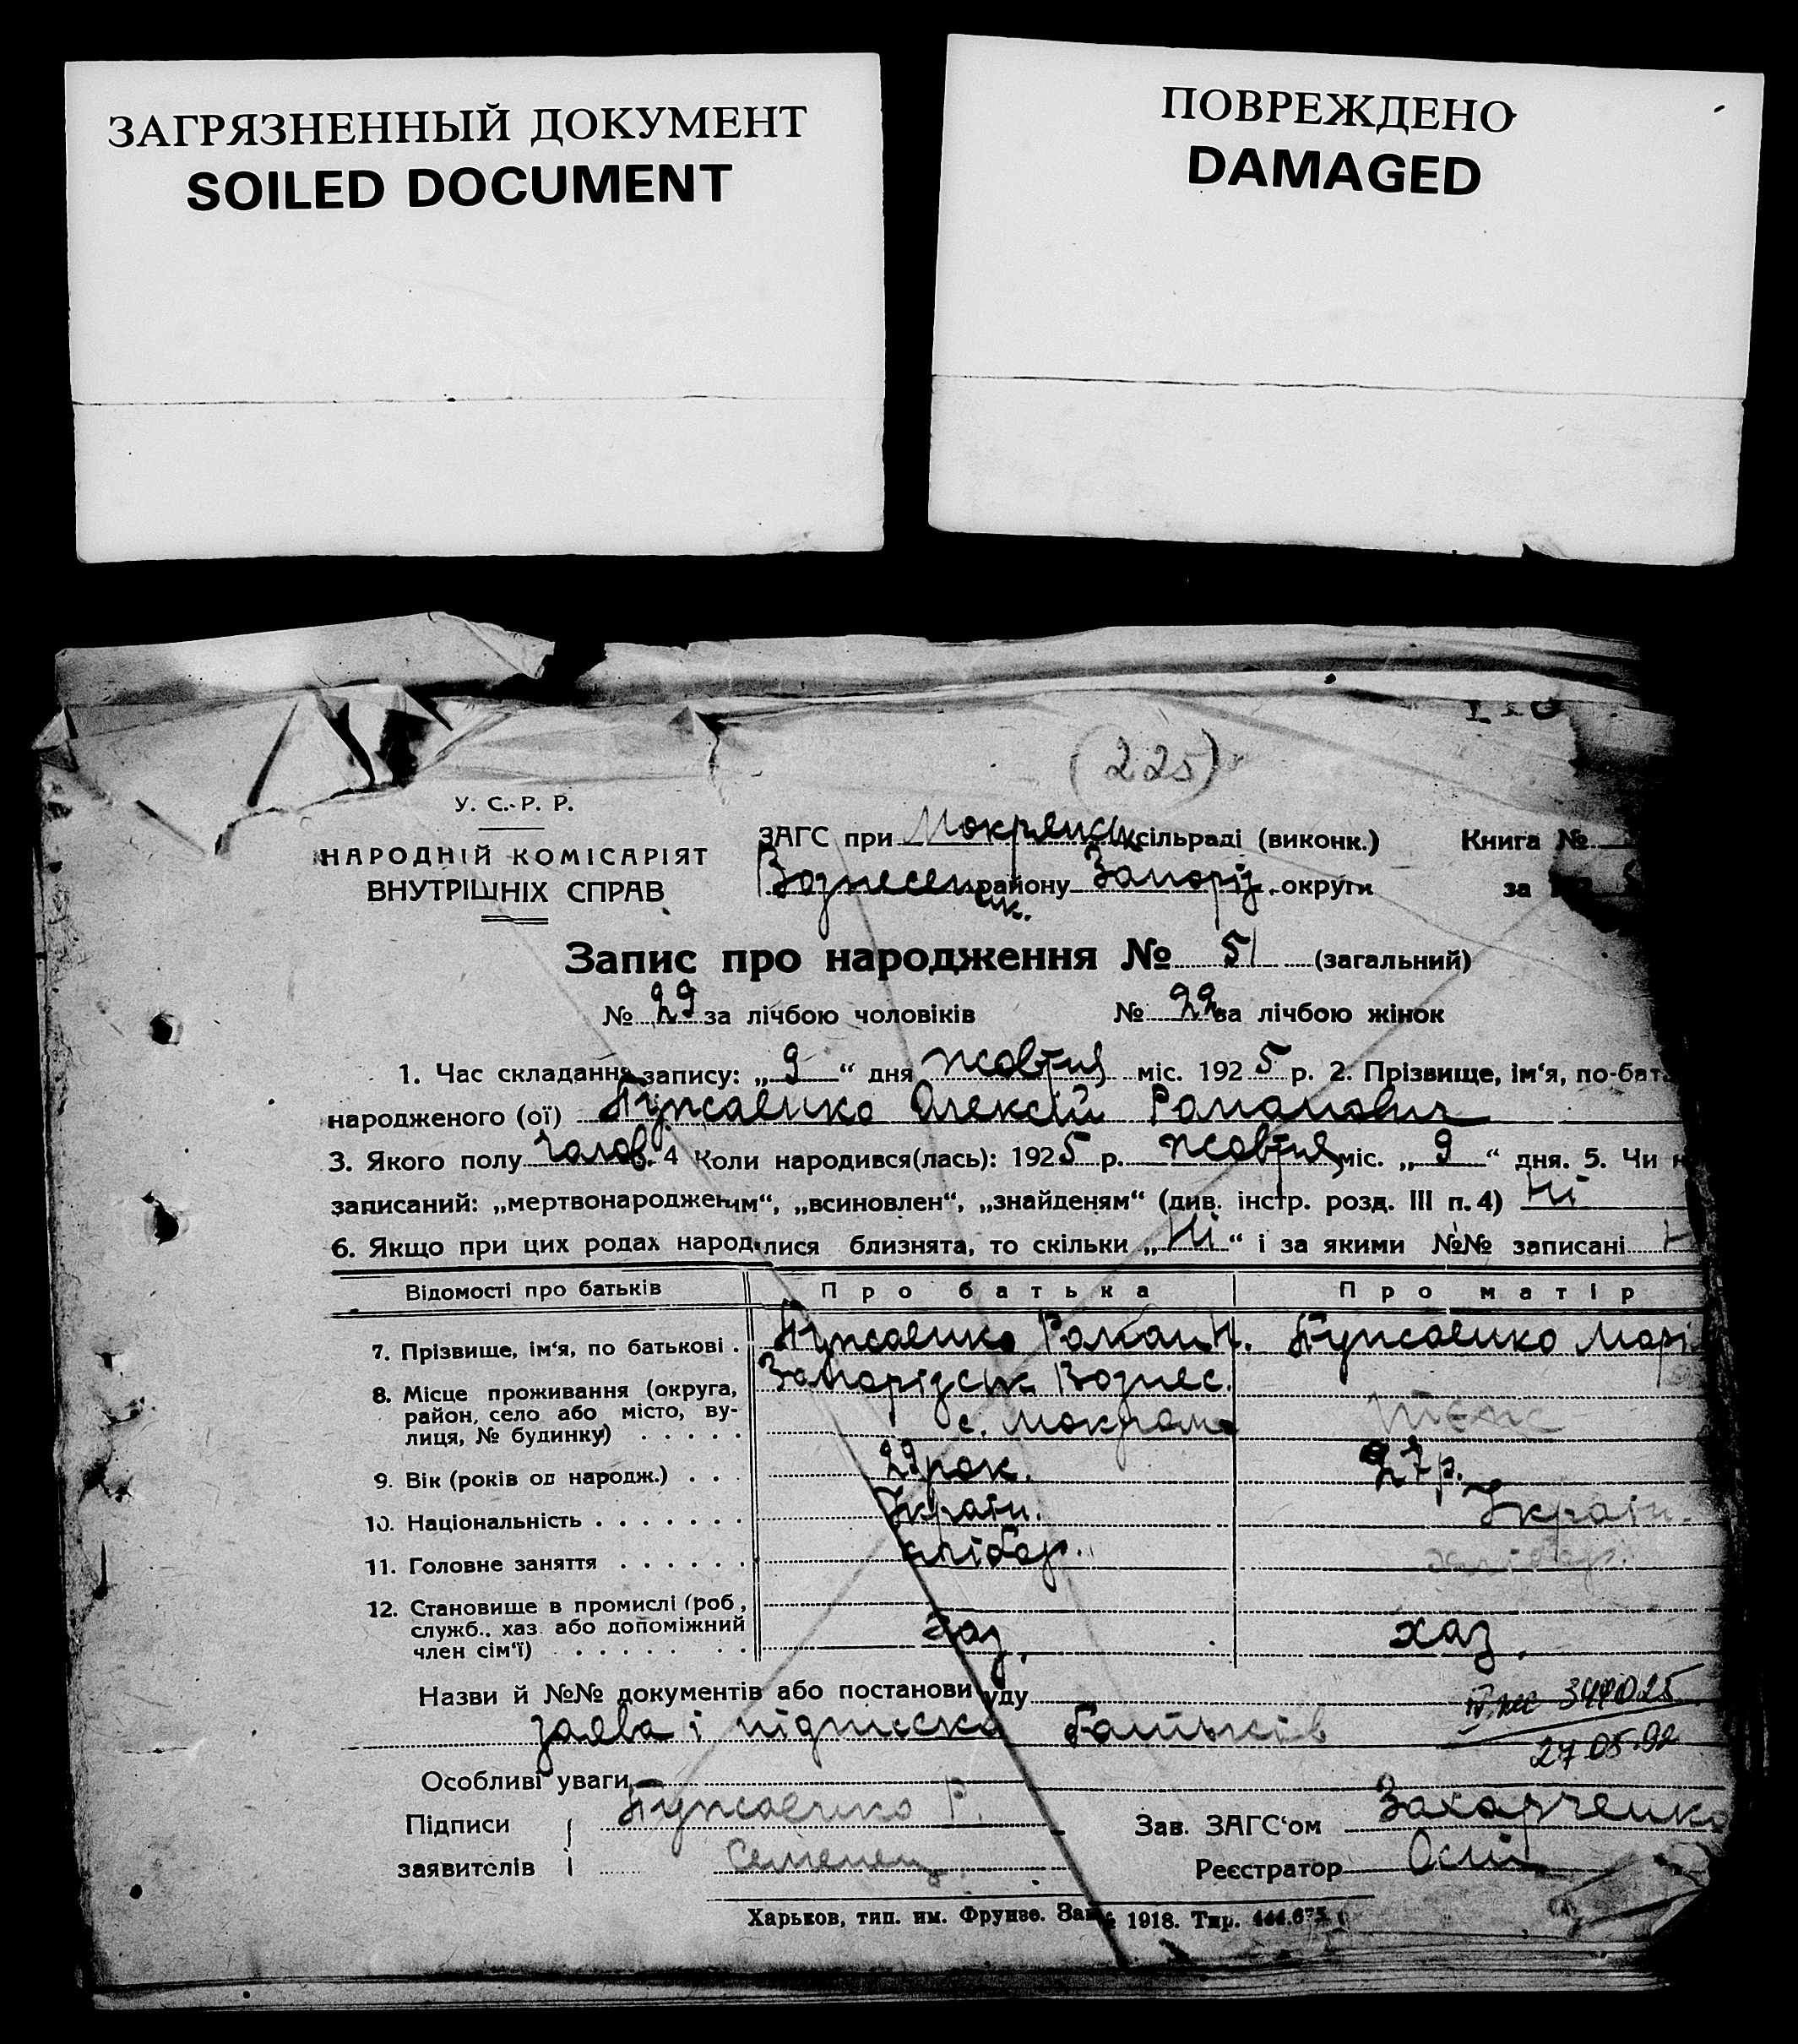 ЗАГРЯЗНЕННЫЙ ДОКУМЕНТ
SOILED DOCUMENT
ПОВРЕЖДЕНО
DAMAGED
(225)
У. С.-Р. Р.
НАРОДНІЙ КОМІСАРІЯТ
ВНУТРІШНІХ СПРАВ
ЗАГС при Мокрянськ сільраді (виконк.) Книга №
Вознесенськ. району Запоріз. округи за
Запис про народження № 51 (загальний)
№ 29 за лічбою чоловіків № 22 за лічбою жінок
1. Час складання запису: „ 9 “ дня жовтня міс. 192 5 р. 2. Прізвище, ім‘я, по-бат
народженого (ої) Пужаенко Олексій Романович
3. Якого полу чолов. 4 Коли народився(лась): 192 5 р. жовтня міс. „ 9 “ дня. 5. Чи н
записаний: „мертвонародженим“, „всиновлен“, „знайденям“ (див. інстр. розд. III п. 4) Ні
6. Якщо при цих родах народилися близнята, то скільки „ Ні “ і за якими №№ записані Н
Відомості про батьків Про батька Про матір
7. Прізвище, ім‘я, по батькові . Пужаенко Роман Н. Пужаенко Марі
8. Місце проживання (округа, район, село або місто, ву-лиця, № будинку) . . . . . Запорізськ Вознес.
с. Мокрянка теж
9. Вік (років од народж.) . . . 29 рок. 27 р.
10. Національність . . . . . . . Україн. Україн.
11. Головне заняття . . . . . . хлібор. хлібор.
12. Становище в промислі (роб., служб., хаз. або допоміжний член сім‘ї) . . . . . . . хаз. хаз.
Назви й №№ документів або постанови суду
заява і підписка батьків
349025
27 05.92
Особливі уваги
Підписи Пужаенко Р. Зав. ЗАГС‘ом Захарченко
заявителів Реєстратор
Харьков, тип. им. Фрунзе. Зак. 1918. Тир.